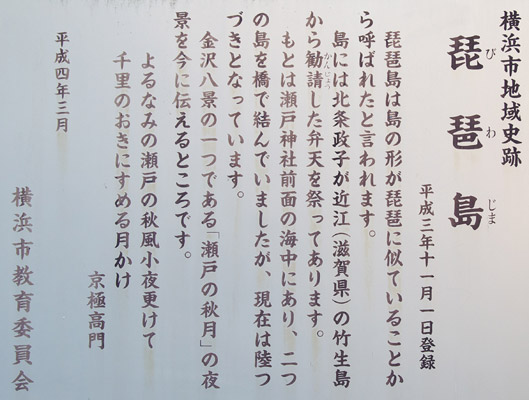 横浜市地域史跡
琵琶島
びわじま
平成三年十一月一日登録
琵琶島は島の形が琵琶に似ていることか
ら呼ばれたと言われます。
島には北条政子が近江(滋賀県)の竹生島
から勧請した弁天を祭ってあります。
かんじょう
もとは瀬戸神社前面の海中にあり、二つ
の島を橋で結んでいましたが、現在は陸つ
づきとなっています。
金沢八景の一つである「瀬戸の秋月」の夜
景を今に伝えるところです。
よるなみの瀬戸の秋風小夜更けて
千里のおきにすめる月かけ
京極高門
平成四年三月
横浜市教育委員会